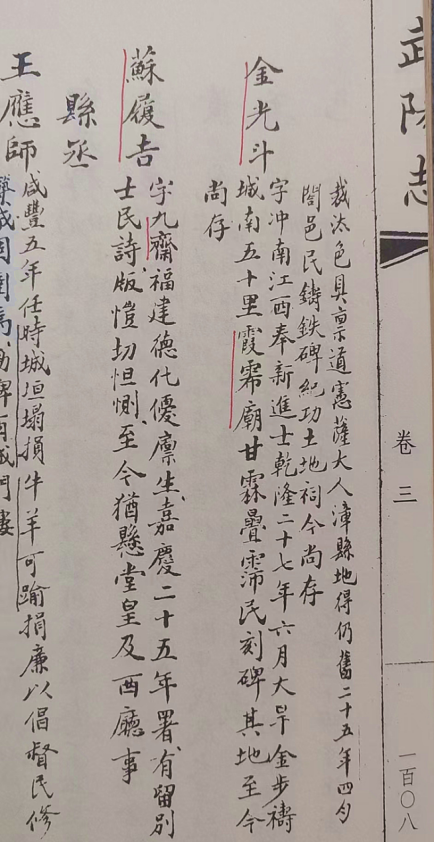 武阳志
卷三
一百〇八
裁汰色具禀道憲薩大人漳縣地得仍舊二十五年四勺
閤邑民鑄鉄碑紀功土地祠今尚存
金光斗
字冲南江西奉新進士乾隆二十七年六月大旱金步禱
城南五十里霞霈廟甘霖疊霈民刻碑其地至今
尚存
蘇履吉
字九齋福建德化優廪生嘉慶二十五年署有留别
士民詩版愷切怛惻至今猶懸堂皇及西廳事
縣丞
王應師
咸豐五年任時城垣塌損牛羊可踰捐廉以倡督民修